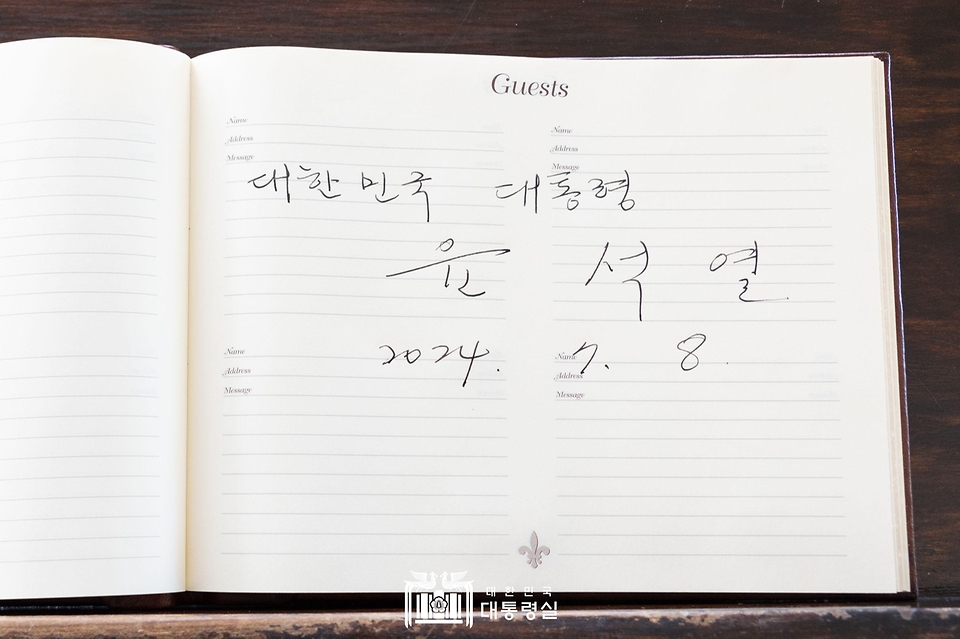 Guests
Name
Address
Message
Name
Address
Message
대한민국 대통령
윤 석 열
2024. 7. 8.
Name
Address
Message
Name
Address
Message
대한민국
대통령실